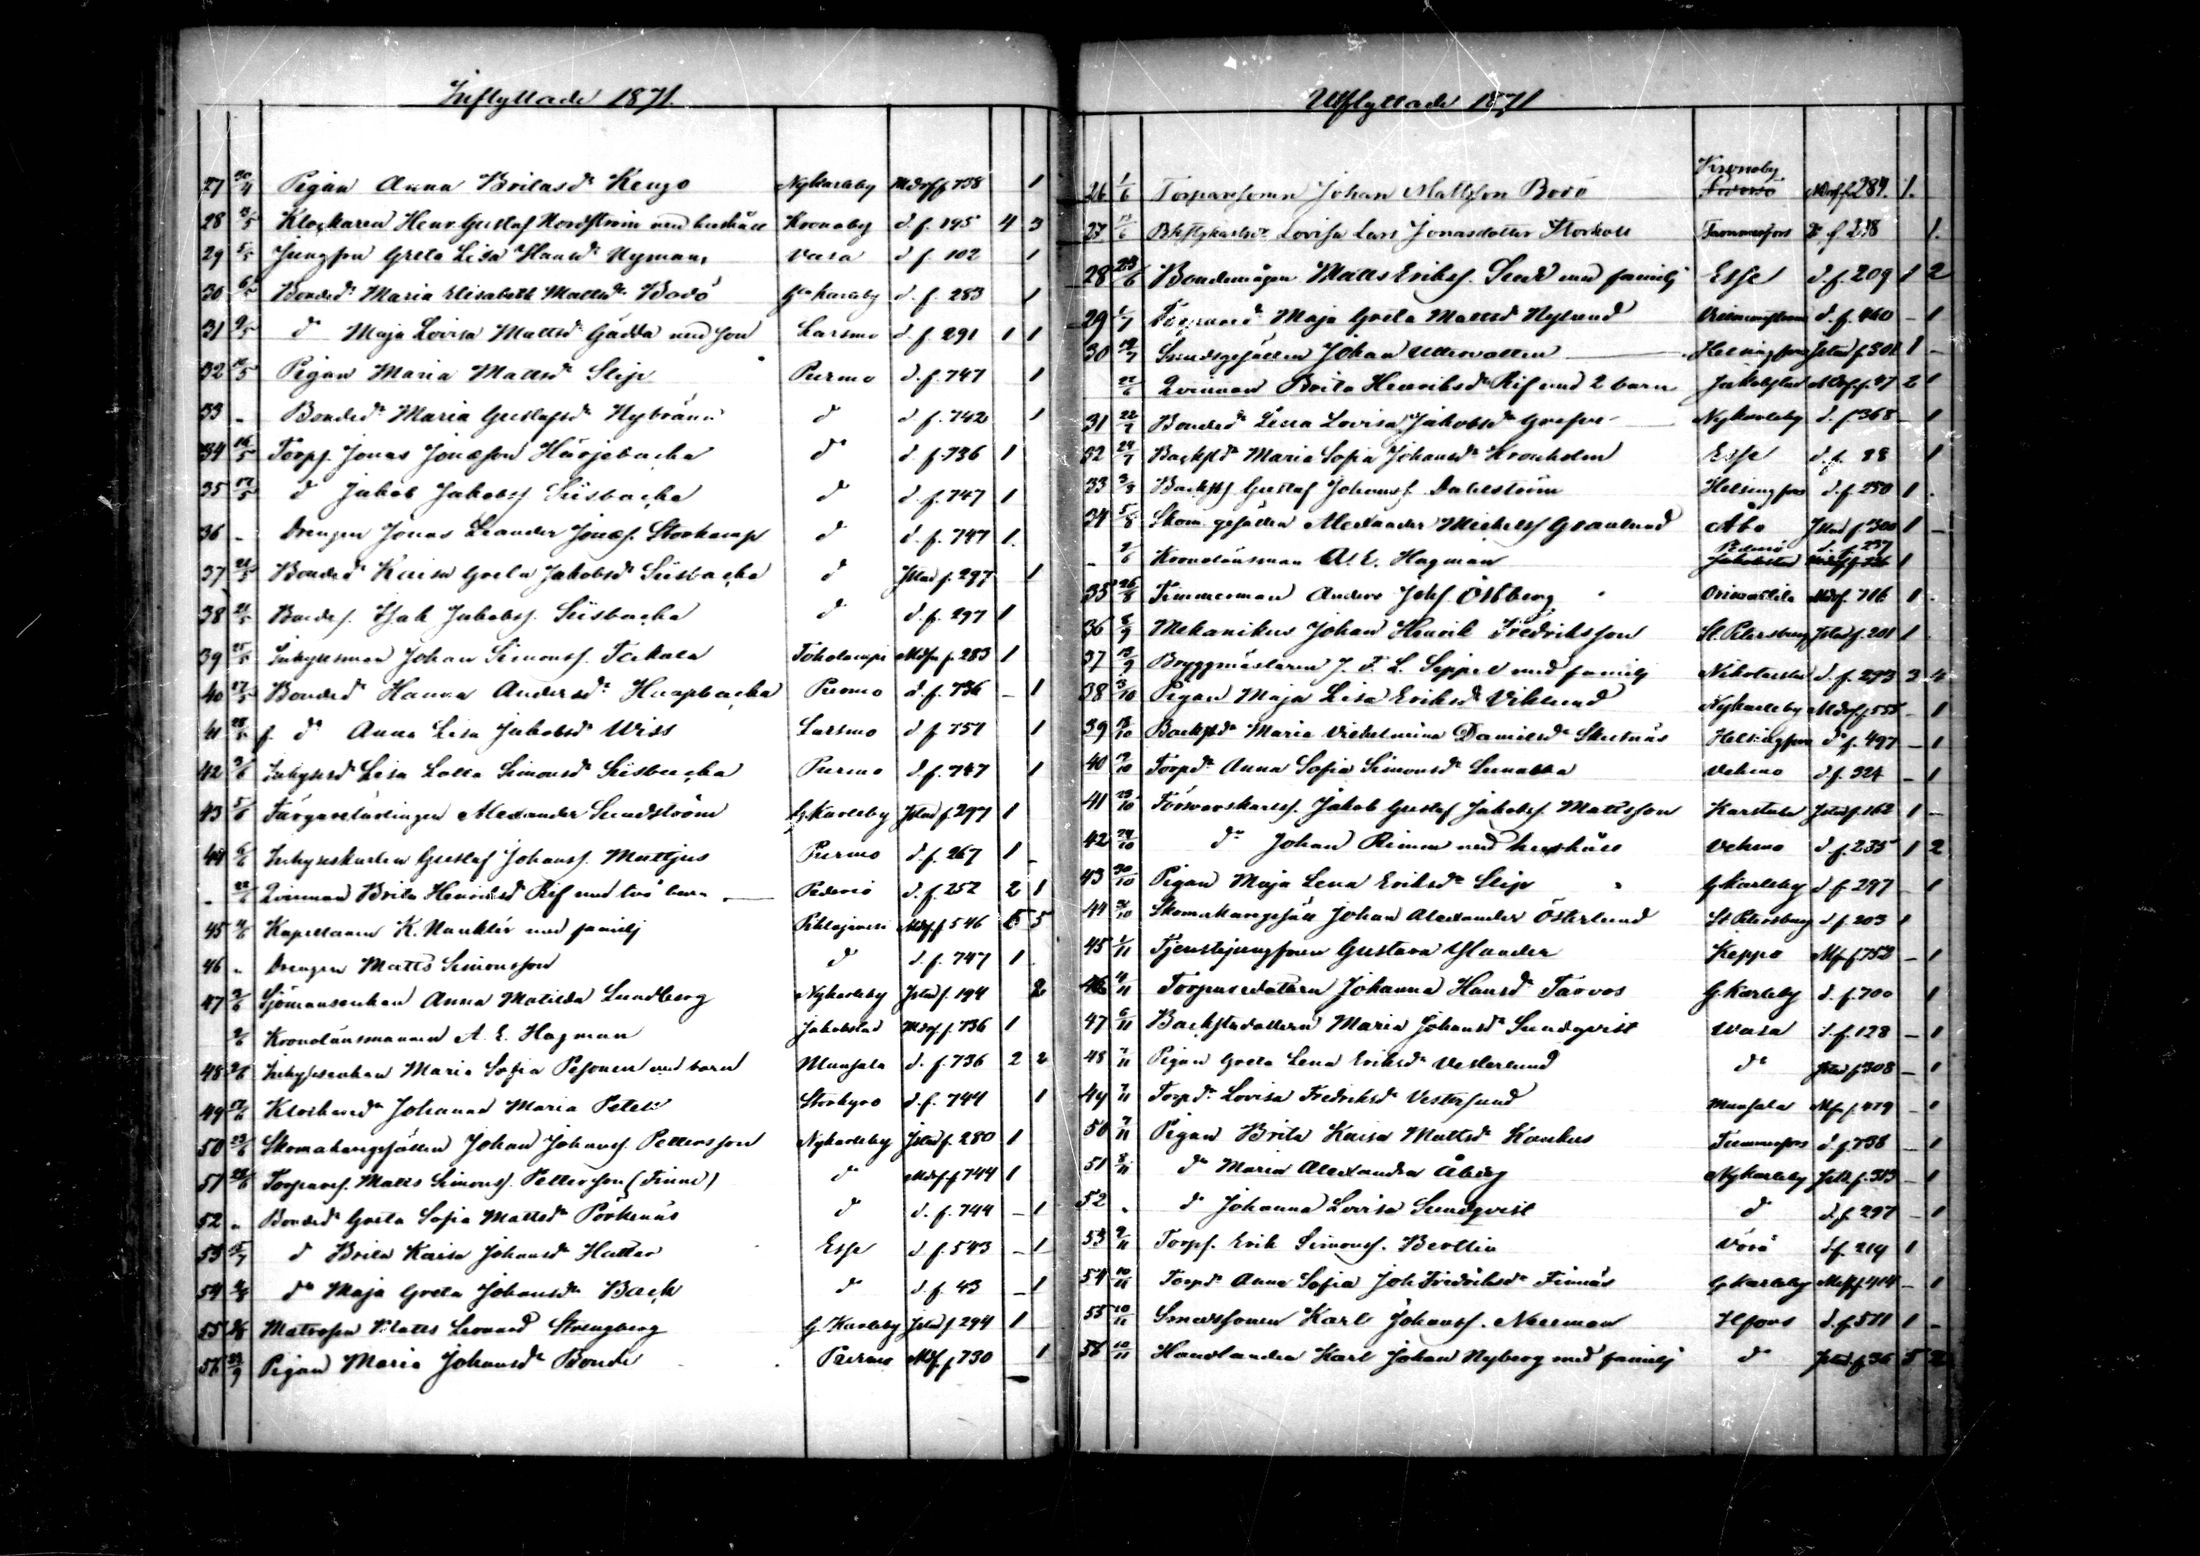 Inflyttade 1871.
27 30/4 Pigan Anna Britasdr Kengo Nykarleby Mdsf f. 738 1
28 /5 Klockaren Henr Gustaf Nordström med hushåll Kronoby d. f. 195 4 3
29 5/5 Jungfrun Greta Lisa Hansdr Nyman Vasa d f. 102 1
30 6/5 Bondedr Maria Elisabeth Mattsdr Bodö Gla karleby d. f. 283 1
31 9/5 d Maja Lovisa Mattsdr Gädda med son Larsmo d f. 291 1 1
32 /5 Pigan Maria Mattsdr Slip Purmo d. f. 747 1
33 " Bondedr Maria Gustafsdr Nybränn d d f. 742 1
34 16/5 Torps. Jonas Jonasson Härjebacka d d. f. 736 1
35 17/5 d Jakob Jakobss Sisbacka d d. f. 747 1
36 - Drengen Jonas Leander Jonass. Storkamp d d. f. 747 1.
37 21/5 Bondedr Kaisa Greta Jakobsdr Sisbacka d Jstad f. 297 1
38 21/5 Bondes. Isak Jakobss. Sisbacka d d. f. 297 1
39 25/5 Inhysesman Johan Simonss. Tokola Toholampi Mdsf f. 283 1
40 17/5 Bondedr Hanna Andersdr Haapbacka Purmo d. f. 736 - 1
41 f. d Anna Lisa Jakobsdr Wiss Larsmo d f 751 1
42 /6 Inhysesdr Lisa Lotta Simonsdr Sisbacka Purmo d. f. 747 1
43 5/6 Färgarelärlingen Alexander Sundström G.karleby Jstad f. 297 1
44 6/6 Inhyseskarlen Gustaf Johanss. Mattjus Purmo d. f. 267 1
- 22/6 Qvinnan Brita Henriksdr Rif med två barn Pedersö d. f. 252 2 1
45 /6 Kapellanen K. Nanklér med familj Pihlajavesi Mdsf f 546 5 5
46 " Drengen Matts Simonsson d d. f. 747 1
47 /6 Sjömansenkan Anna Matilda Lundberg Nykarleby Jstad f. 194 2
2/6 Kronolänsmannen A. E. Hagman Jakobstad Mdsf f. 736 1
48 /6 Inhysesenkan Maria Sofia Pesonen med barn Munsala d. f. 736 2 2
49 /6 Klockaredr Johanna Maria Storkyro d. f. 744 1
50 23/6 Skomakargesällen Johan Johanss. Pettersson Nykarleby Jstad f. 280 1
51 28/6 Torpares. Matts Simonss. Pettersson (Finne) d Mdsf f 744 1
52 " Bondedr Greta Sofia Mattsdr Pörkenäs d d. f. 744 - 1
53 /7 d Brita Kaisa Johansdr Hatter Esse d f. 543 - 1
54 /8 dr Maja Greta Johansdr Back d d. f 43 - 1
55 /8 Matrosen Matts Leonard Strengberg G. Karleby Jstad f. 294 1
56 23/9 Pigan Maria Johansdr Bonde Purmo Mdsf f. 730 1
Utflyttade 1871
26 1/6 Torparsonen Johan Mattsson Bodö Kronoby Mdsf f. 284. 1.
27 /6 Lovisa Lars Jonasdotter Storkoll Tammerfors d. f. 238 1.
28 23/6 Bondemågen Matts Erikss. Sved med familj Esse d. f. 209 1 2
29 /7 Torparedr Maja Greta Mattsdr Nylund d. f. 460 - 1
30 19/7 Smedsgesällen Johan Uttervatten Helsingfors Jstad f. 301 1 -
22/6 Qvinnan Brita Henriksdr Rif med 2 barn Jakobstad Mdsf f. 27 2 1
31 22/7 Bondedr Lena Lovisa Jakobsdr Grefve Nykarleby d. f. 368 - 1
32 24/7 Backstdr Maria Sofia Johansdr Kronholm Esse d. f. 28 1
33 3/8 Backsts Gustaf Johanss. Dahlström Helsingfors d. f. 250 1 .
34 5/8 Skom. gesällen Alexander Michelss Granlund Åbo Jstad f. 300 1 -
- 2/6 Kronolänsman A. E. Hagman Pedersö d. f. 237 1
35 26/8 Timmerman Anders Johs. Östberg Orivasila Mdsf. 716. 1 .
36 8/9 Mekanikus Johan Henrik Fredriksson St. Petersburg Jstad f. 201 1 .
37 13/9 Bryggmästaren J. F. L. Seppel med familj Nikolaistad d. f. 273 3 4
38 3/10 Pigan Maja Lisa Eriksdr Viklund Nykarleby Mdsf f. 555 - 1
39 /10 Backstdr Maria Vilhelmina Danielsdr Skutnäs Helsingfors d. f. 497 - 1
40 /10 Torpdr Anna Sofia Simonsdr Lunabba Vehmo d. f. 324 - 1
41 23/10 Försvarskarlss. Jakob Gustaf Jakobss. Mattsson Karstula Jstad f. 162 1 -
42 24/10 dr Johan Rimm med hushåll Vehmo d. f. 235 1 2
43 30/10 Pigan Maja Lena Eriksdr Slip G.Karleby d. f. 297 - 1
44 /10 Skomakaregesäll Johan Alexander Österlund St Petersburg d. f. 203 1
45 1/11 Tjenstejungfrun Gustava Ylander Keppo Mdf f 752 - 1
46 4/11 Torparedottern Johanna Hansdr Tarvos G.Karleby d. f. 700 1
47 6/11 Backstudottern Maria Johansdr Sundqvist Wasa d. f. 128 - 1
48 7/11 Pigan Greta Lena Eriksdr Vesterlund dr Jstad f. 308 - 1
49 7/11 Torpdr Lovisa Fredriksdr Vestersund Munsala Mdf f. 479 - 1
50 7/11 Pigan Brita Kaisa Mattsdr Kankus Tammerfors d. f. 738 - 1
51 8/11 dr Maria Alexandra Åberg Nykarleby Jstd. f. 313 - 1
52 " d Johanna Lovisa Sundqvist d d. f. 297 - 1
53 9/11 Torps. Erik Simonss. Berttin Vörå d. f. 219 1
54 10/11 Torpdr Anna Sofia Joh. Fredriksdr Finnäs G.Karleby Mdsf f. 414 - 1
55 10/11 Smedssonen Karl Johanss. Neiman Hfors d. f. 511 1 -
56 10/11 Handlanden Karl Johan Nyberg med familj d Jstad. f. 36 5 2